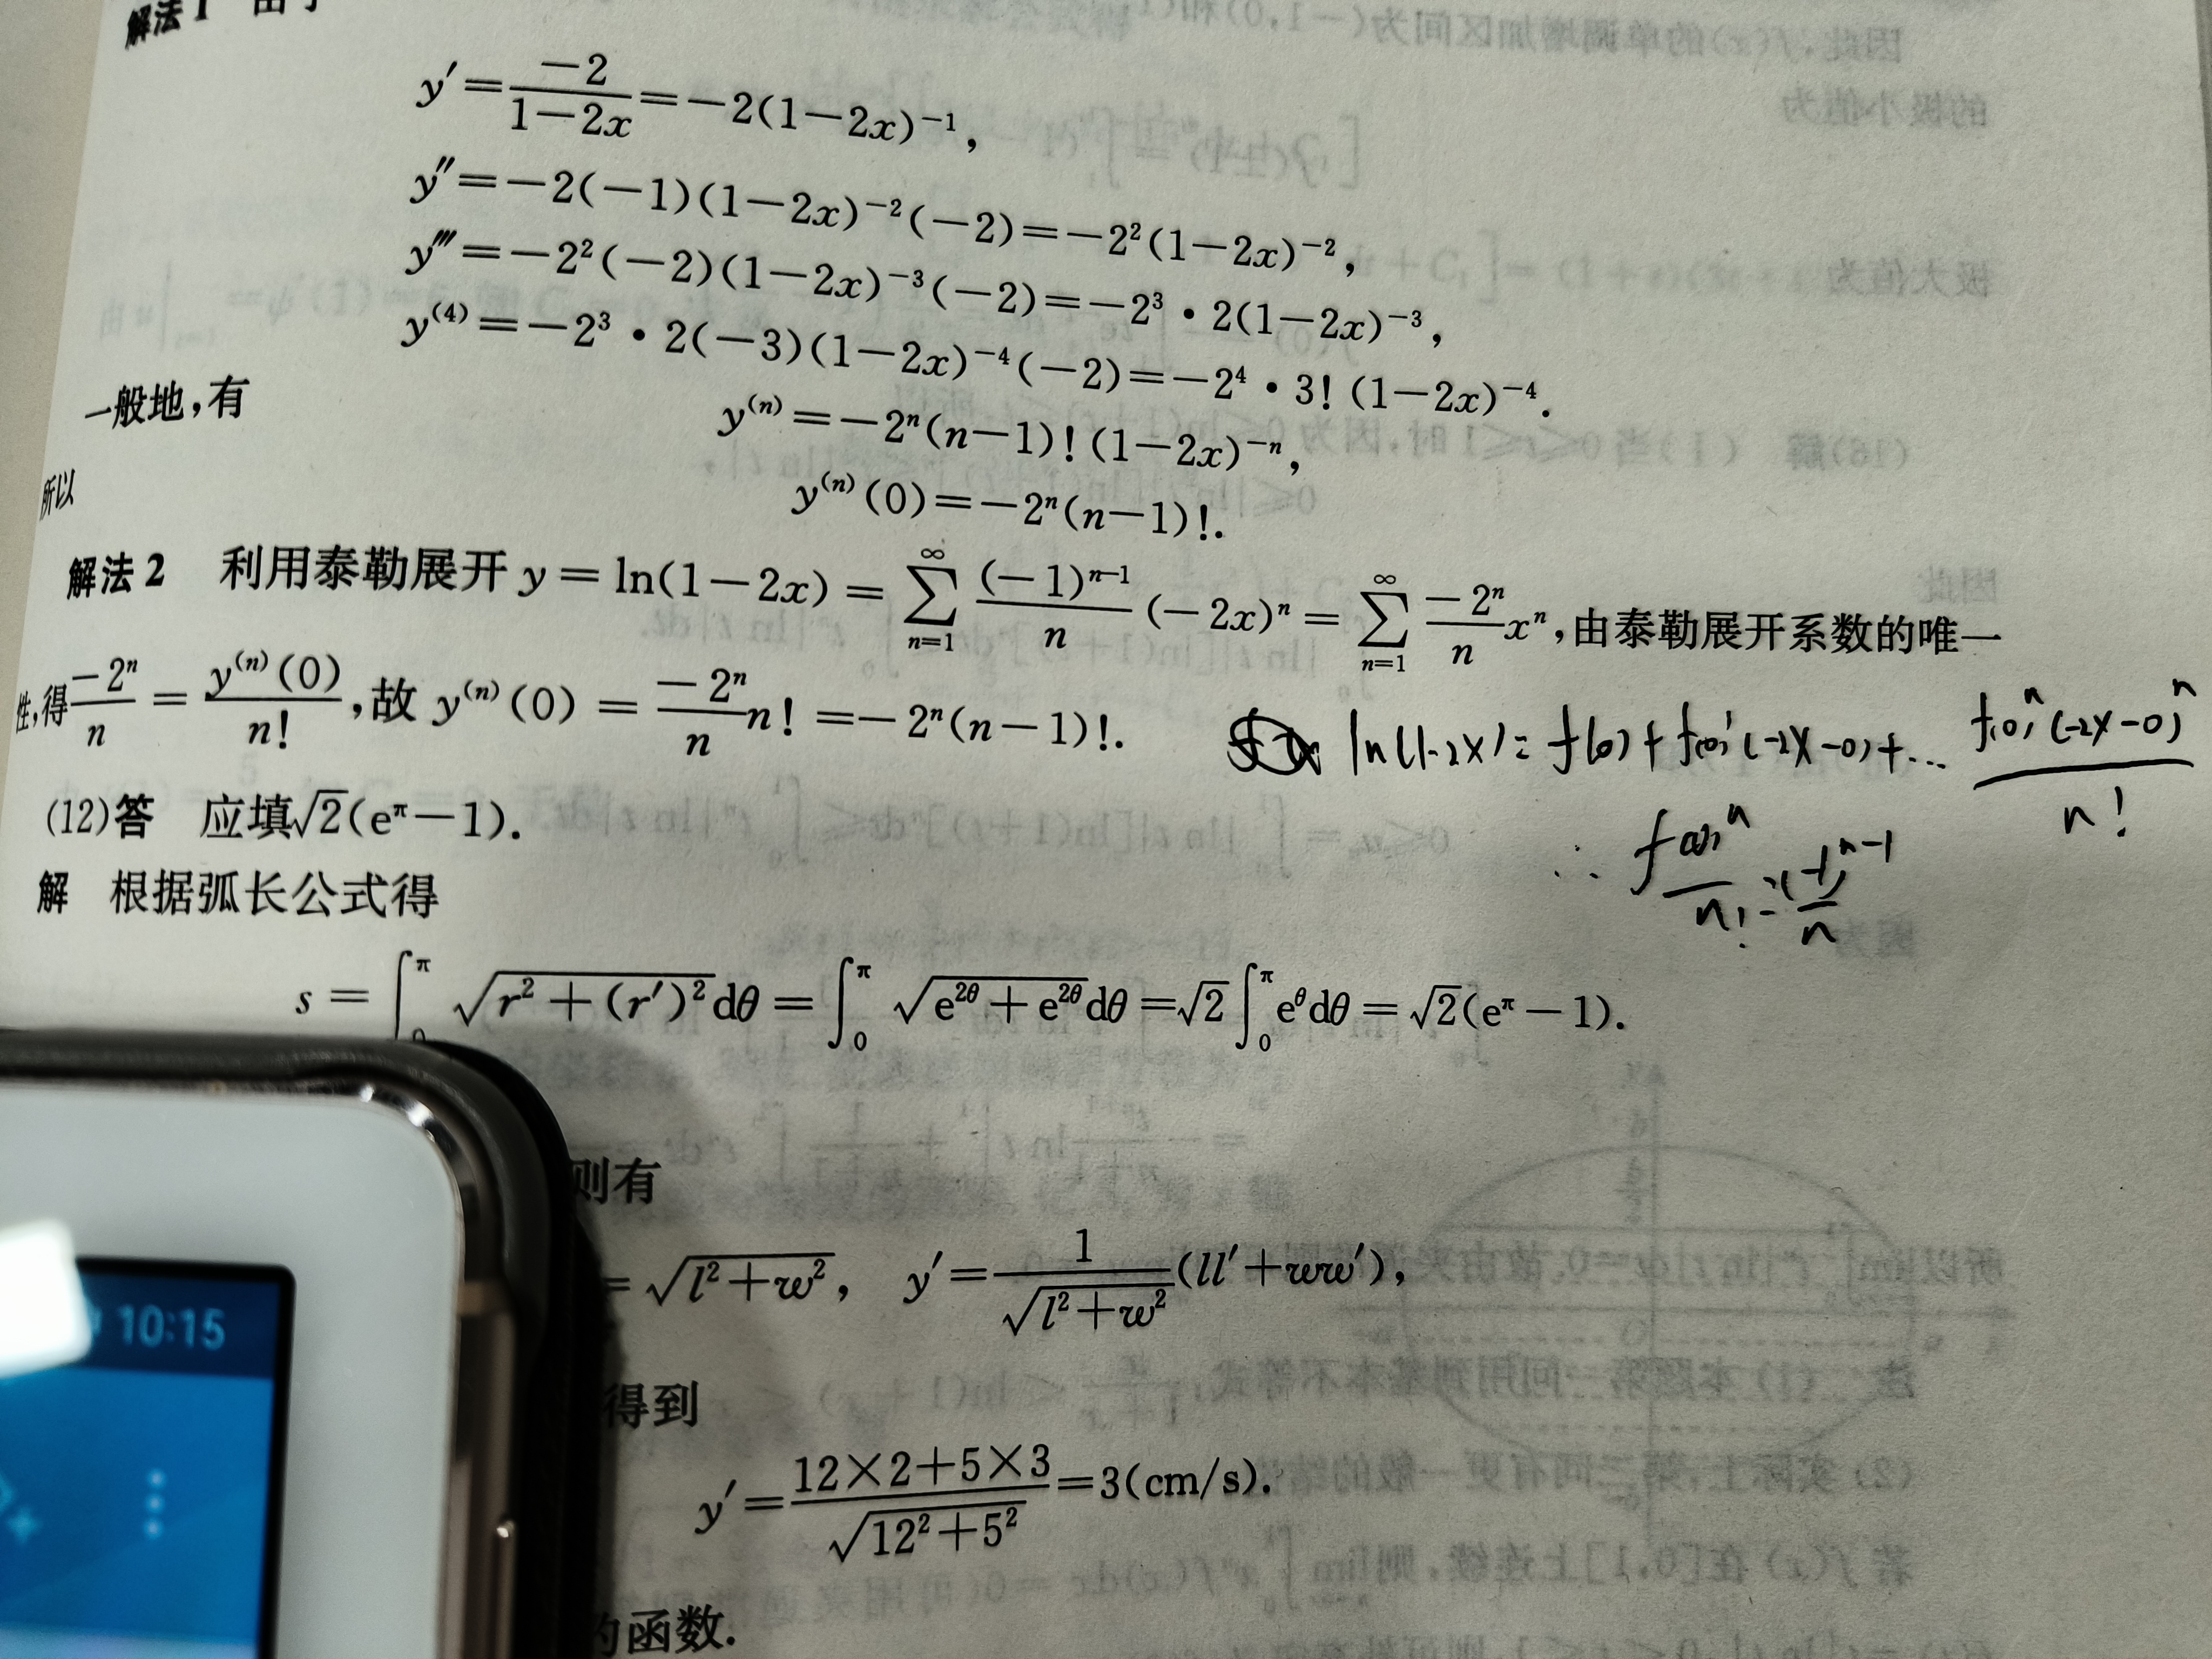 解法1 由于
y′=\frac{-2}{1-2x}=-2(1-2x)^{-1},
y″=-2(-1)(1-2x)^{-2}(-2)=-2^2(1-2x)^{-2},
y‴=-2^2(-2)(1-2x)^{-3}(-2)=-2^3·2(1-2x)^{-3},
y^{(4)}=-2^3·2(-3)(1-2x)^{-4}(-2)=-2^4·3!(1-2x)^{-4}.
一般地,有
y^{(n)}=-2^n(n-1)!(1-2x)^{-n},
所以
y^{(n)}(0)=-2^n(n-1)!.
解法2 利用泰勒展开 y=ln(1-2x)=\sum_{n=1}^{∞}\frac{(-1)^{n-1}}{n}(-2x)^n=\sum_{n=1}^{∞}\frac{-2^n}{n}x^n,由泰勒展开系数的唯一
性,得\frac{-2^n}{n}=\frac{y^{(n)}(0)}{n!},故 y^{(n)}(0)=\frac{-2^n}{n}n!=-2^n(n-1)!.
ln(1-2x)=f(0)+f(0)'(-2x-0)+…\frac{f(0)^n(-2x-0)^n}{n!}
∴\frac{f(0)^n}{n!}=\frac{(-1)^{n-1}}{n}
(12)答 应填\sqrt{2}(e^π-1).
解 根据弧长公式得
s=\int_0^π\sqrt{r^2+(r′)^2}dθ=\int_0^π\sqrt{e^{2θ}+e^{2θ}}dθ=\sqrt{2}\int_0^πe^θdθ=\sqrt{2}(e^π-1).
则有
=\sqrt{l^2+w^2}, y′=\frac{1}{\sqrt{l^2+w^2}}(ll′+ww′),
10:15
得到
y′=\frac{12×2+5×3}{\sqrt{12^2+5^2}}=3(cm/s).
的函数.